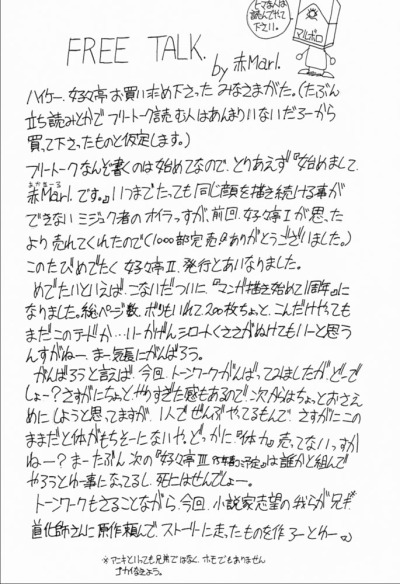 ヒマな人は
読んでやって
下さい。
マルボロ
FREE TALK.
by 赤Marl.
ハイケー、好々亭お買い求め下さった みなさまがた。(たぶん
立ち読みとかで フリートーク読む人はあんまりいないだろーから
買って下さったものと仮定します。)
フリートークなんぞ書くのは始めてなので、とりあえず『始めまして、
赤Marl.です。』いつまでたっても同じ顔を描き続ける事が
できない ミジュク者の オイラっすが、前回、好々亭Ⅰが思った
より 売れてくれたので(1000部完売!!ありがとうございました。)
このたびめでたく 好々亭Ⅱ、発行とあいなりました。
めでたいといえば、こないだついに、『マンガ描き始めて1周年』に
なりました。総ページ数、ボツもいれて200枚ちょっと、こんだけやっても
まだこのテードか…いーかげんシロートくささがぬけてもいーと思う
んすがねー。まー気長にがんばろう。
がんばろうと言えば、今回、トーンワークがんばってみましたが、どーで
しょー?さすがにちょっとやりすぎた感もあるので、次からはちょっとおさえ
めにしようと思ってますが、1人でぜんぶやってるもんで、さすがにこの
ままだと体がもちそーにないや。どっかに『体力』売ってないっすか
ねー?まーたぶん次の『好々亭Ⅲ』は誰かと組んで
やろうとゆー事になってるし、死にはせんでしょー。
トーンワークもさることながら、今回、小説家志望の我らが兄ギ
道化師さんに原作頼んで、ストーリーに走ったものを作ろーとゆー
*アニキといっても兄弟ではなく、ホモでもありません